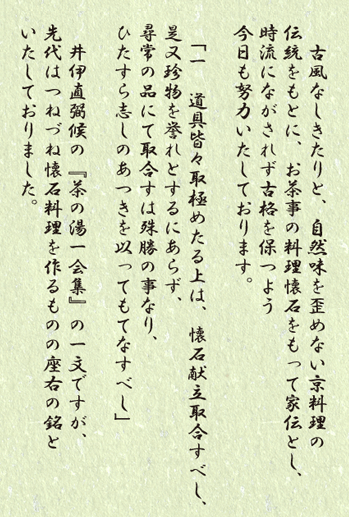 古風なしきたりと、自然味を歪めない京料理の
伝統をもとに、お茶事の料理懐石をもって家伝とし、
時流にながされず古格を保つよう
今日も努力いたしております。
「一 道具皆々取極めたる上は、懐石献立取合すべし、
是又珍物を誉れとするにあらず、
尋常の品にて取合すは殊勝の事なり、
ひたすら志しのあつきを以ってもてなすべし」
井伊直弼候の『茶の湯一会集』の一文ですが、
先代はつねづね懐石料理を作るものの座右の銘と
いたしておりました。